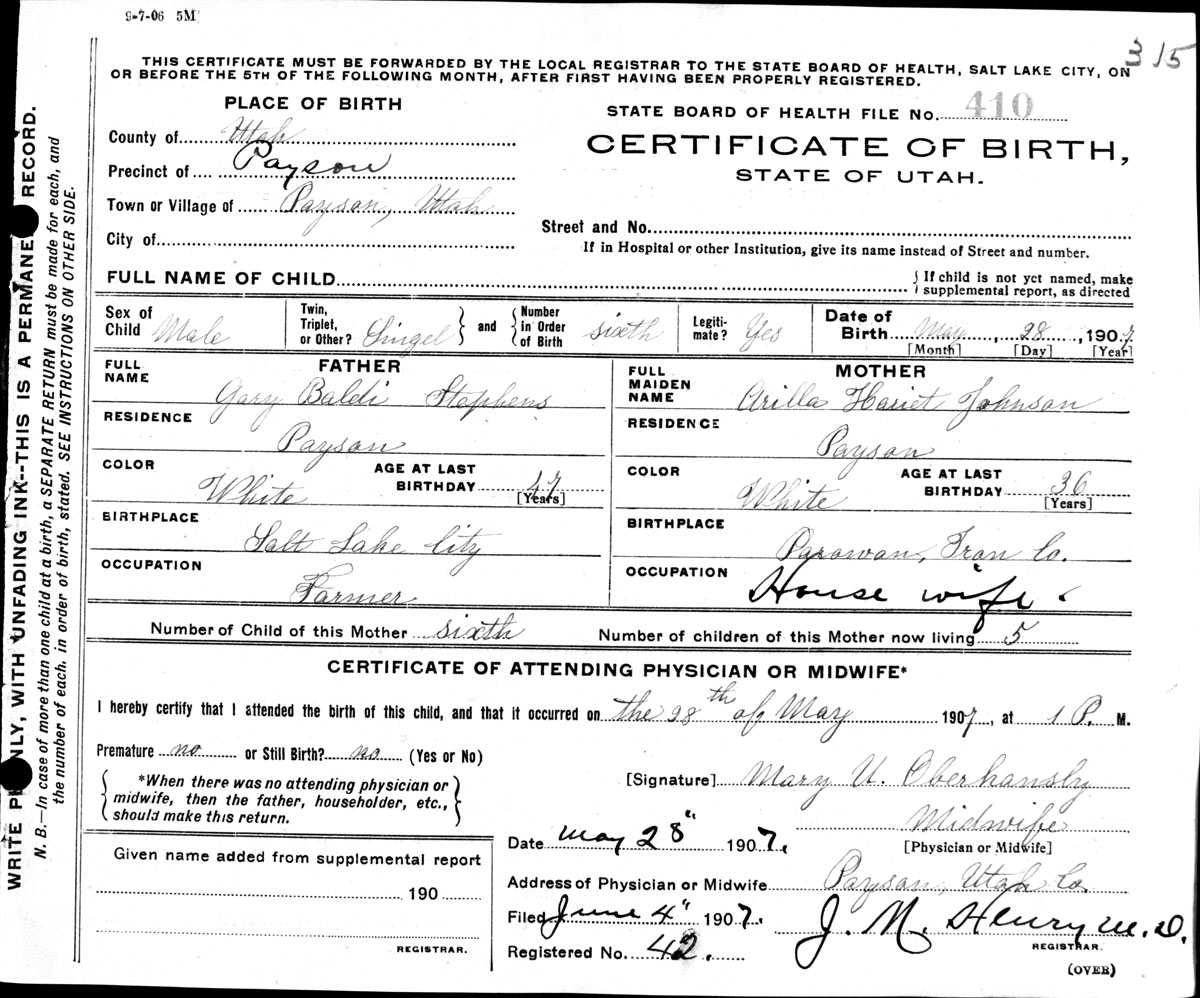 9-7-06 5M
315
THIS CERTIFICATE MUST BE FORWARDED BY THE LOCAL REGISTRAR TO THE STATE BOARD OF HEALTH, SALT LAKE CITY, ON
OR BEFORE THE 5TH OF THE FOLLOWING MONTH, AFTER FIRST HAVING BEEN PROPERLY REGISTERED.
PLACE OF BIRTH
STATE BOARD OF HEALTH FILE No. 410
County of Utah
CERTIFICATE OF BIRTH,
Precinct of Payson
STATE OF UTAH.
Town or Village of Payson, Utah
Street and No.
City of
If in Hospital or other Institution, give its name instead of Street and number.
FULL NAME OF CHILD
{ If child is not yet named, make
supplemental report, as directed
Sex of Child Male
Twin, Triplet, or Other? Singel } and { Number in Order of Birth sixth
Legiti-mate? Yes
Date of Birth May, 28, 1907
[Month] [Day] [Year]
FATHER
FULL NAME Gary Baldi Stephens
RESIDENCE
Payson
COLOR White AGE AT LAST BIRTHDAY 47
[Years]
BIRTHPLACE
Salt Lake City
OCCUPATION
Farmer
MOTHER
FULL MAIDEN NAME Arilla Hariet Johnson
RESIDENCE
Payson
COLOR White AGE AT LAST BIRTHDAY 36
[Years]
BIRTHPLACE
Parowan, Iron Co.
OCCUPATION House wife.
Number of Child of this Mother sixth Number of children of this Mother now living 5
CERTIFICATE OF ATTENDING PHYSICIAN OR MIDWIFE*
I hereby certify that I attended the birth of this child, and that it occurred on the 28th of May 1907, at 1 P. M.
Premature no or Still Birth? no (Yes or No)
{ *When there was no attending physician or
midwife, then the father, householder, etc.,
should make this return. }
[Signature] Mary U. Oberhansly
Midwife
[Physician or Midwife]
Date May 28" 1907.
Given name added from supplemental report
190
REGISTRAR.
Address of Physician or Midwife Payson, Utah Co.
Filed June 4" 1907. J. M. Henry M.D.
REGISTRAR.
Registered No. 42.
(OVER)
WRITE P NLY, WITH UNFADING INK--THIS IS A PERMANE RECORD.
N. B.—In case of more than one child at a birth, a SEPARATE RETURN must be made for each, and
the number of each, in order of birth, stated. SEE INSTRUCTIONS ON OTHER SIDE.